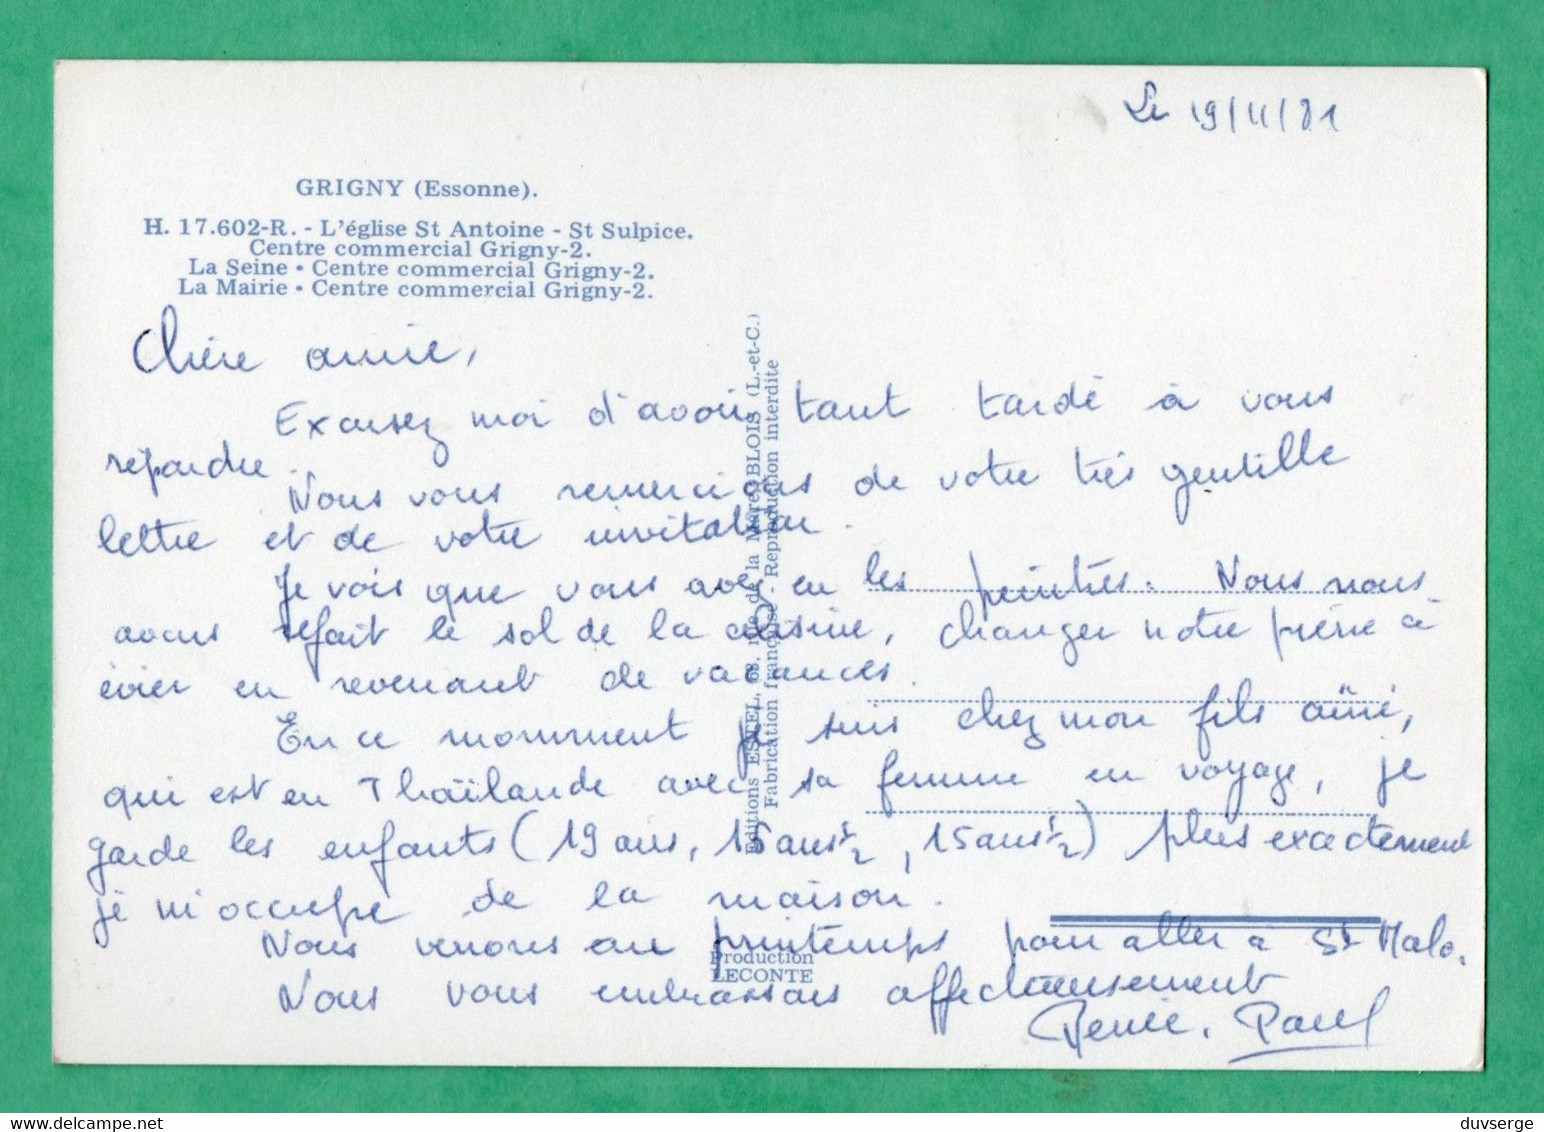 Le 19/11/81
GRIGNY (Essonne).
H. 17.602-R. - L'église St Antoine - St Sulpice.
Centre commercial Grigny-2.
La Seine • Centre commercial Grigny-2.
La Mairie • Centre commercial Grigny-2.
Chère amie,
Excusez moi d'avoir tant tardé à vous
répondre.
Nous vous remercions de votre très gentille
lettre et de votre invitation.
Je vois que vous avez eu les peintres. Nous nous
avons refait le sol de la cuisine, changer notre pierre à
évier en revenant de vacances.
En ce momment je suis chez mon fils aîné,
qui est en Thaïlande avec sa femme en voyage, je
garde les enfants (19 ans, 16 ans 1/2, 15 ans 1/2) plus exactement
je m'occupe de la maison.
Nous venons au printemps pour aller à St Malo.
Nous vous embrassons affectueusement
Renée. Paul
Editions ESTEL, 68. rue de la Mare, BLOIS (L.-et-C.)
Fabrication française - Reproduction interdite
Production
LECONTE
duvserge